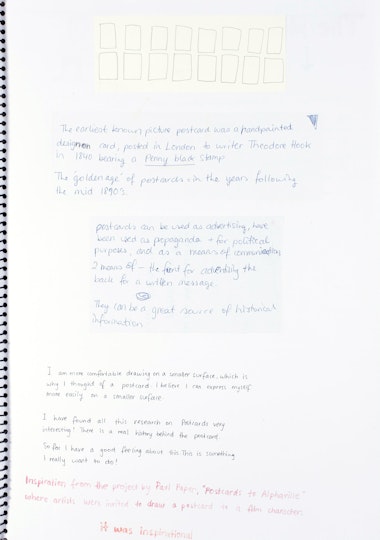 The earliest known picture postcard was a handpainted
design on card, posted in London to writer Theodore Hook
in 1840 bearing a Penny black stamp
The 'golden age' of postcards in the years following
the mid 1890's.
postcards can be used as advertising, have
been used as propoganda - for political
purposes, and as a means of communication
2 means of - the front for advertising the
back for a written message.
They can be a great source of historical
information
I am more comfortable drawing on a smaller surface, which is
why I thought of a postcard. I believe I can express myself
more easily on a smaller surface.
I have found all this research on Postcards very
interesting! There is a real history behind the postcard.
So far I have a good feeling about this. This is something
I really want to do!
Inspiration from the project by Paul "Postcards to Alphaville"
where artists were invited to draw a postcard to a film character.
it was inspirational